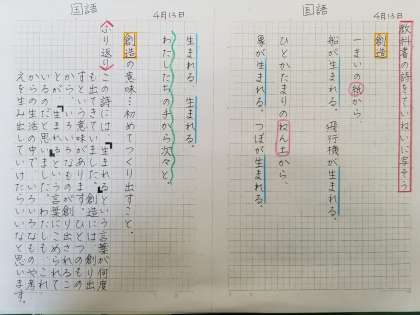 国語
4月13日
教科書の詩をていねいに写そう
創造
一まいの紙から、
船が生まれる。飛行機が生まれる。
ひとかたまりのねん土から、
象が生まれる。つぼが生まれる。
国語
4月13日
生まれる、生まれる。
わたしたちの手から次々と。
創造の意味…初めてつくり出すこと。
ふり返り
この詩には、「生まれる」という言葉が何度
も出てきていました。創造には、創り出
すという意味があります。ひとつのもの
から、いろいろなものが創り出されるこ
とが「生まれる」という言葉にこめられて
いるのだと思いました。わたしも、これ
からの生活の中で、いろいろなものや考
えを生み出していけたらいいなと思います。